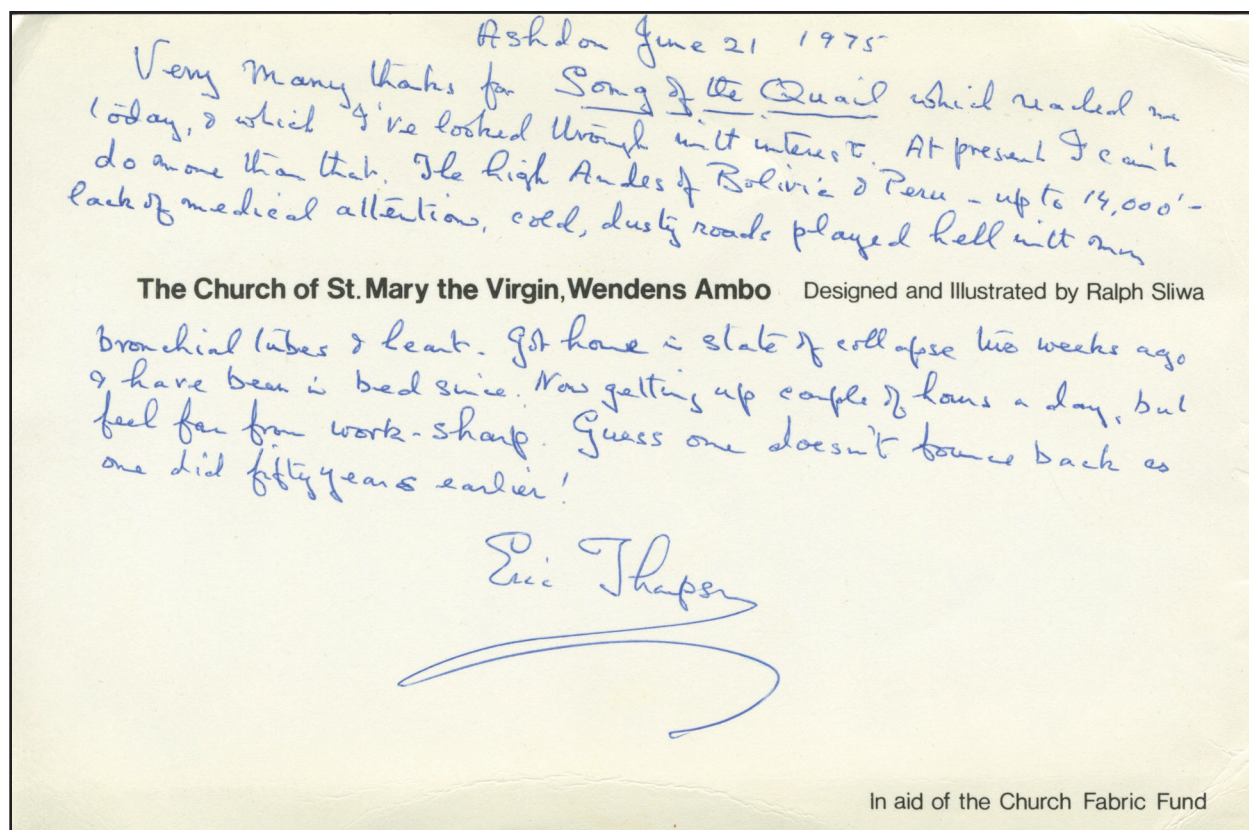 Ashdon June 21 1975
Very many thanks for Song of the Quail which reached me
today, & which I've looked through with interest. At present I can't
do more than that. The high Andes of Bolivia & Peru – up to 14,000' –
lack of medical attention, cold, dusty roads played hell with my
The Church of St. Mary the Virgin, Wendens Ambo Designed and Illustrated by Ralph Sliwa
bronchial tubes & heart. Got home in state of collapse two weeks ago
& have been in bed since. Now getting up couple of hours a day, but
feel far from work-sharp. Guess one doesn't bounce back as
one did fifty years earlier!
Eric Thompson
In aid of the Church Fabric Fund